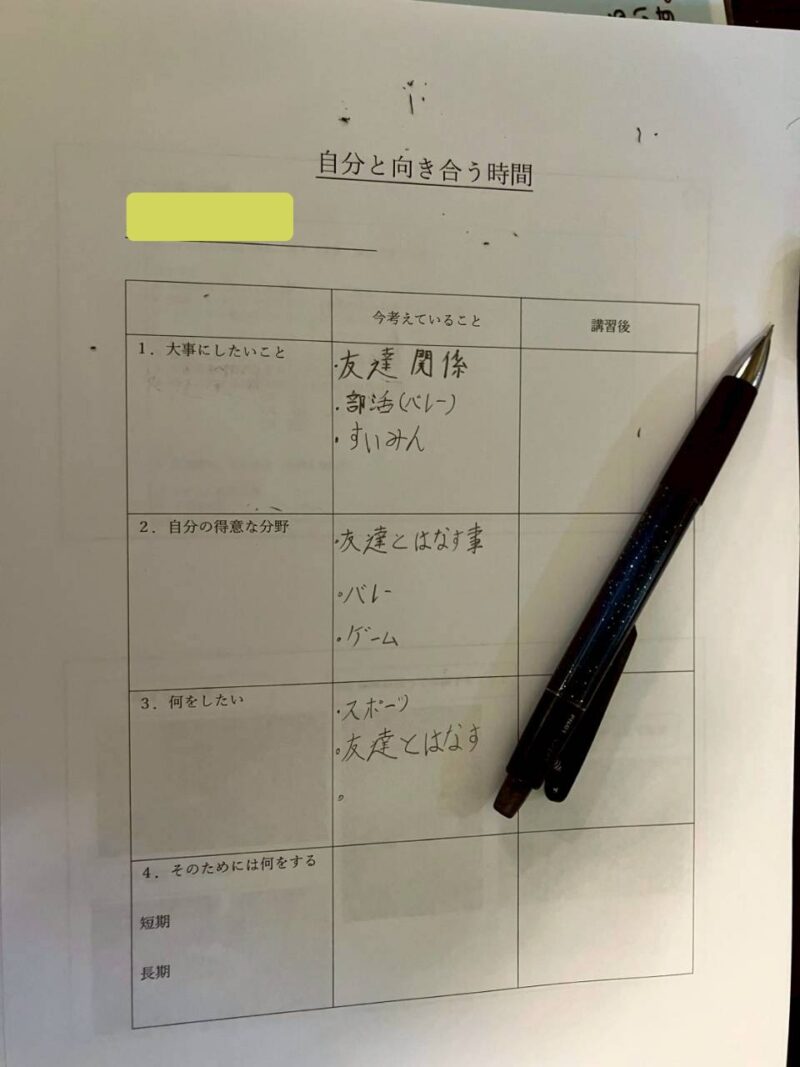 自分と向き合う時間
今考えていること
講習後
1．大事にしたいこと
・友達関係
・部活(バレー)
・すいみん
2．自分の得意な分野
・友達とはなす事
・バレー
・ゲーム
3．何をしたい
・スポーツ
・友達とはなす
。
4．そのためには何をする
短期
長期